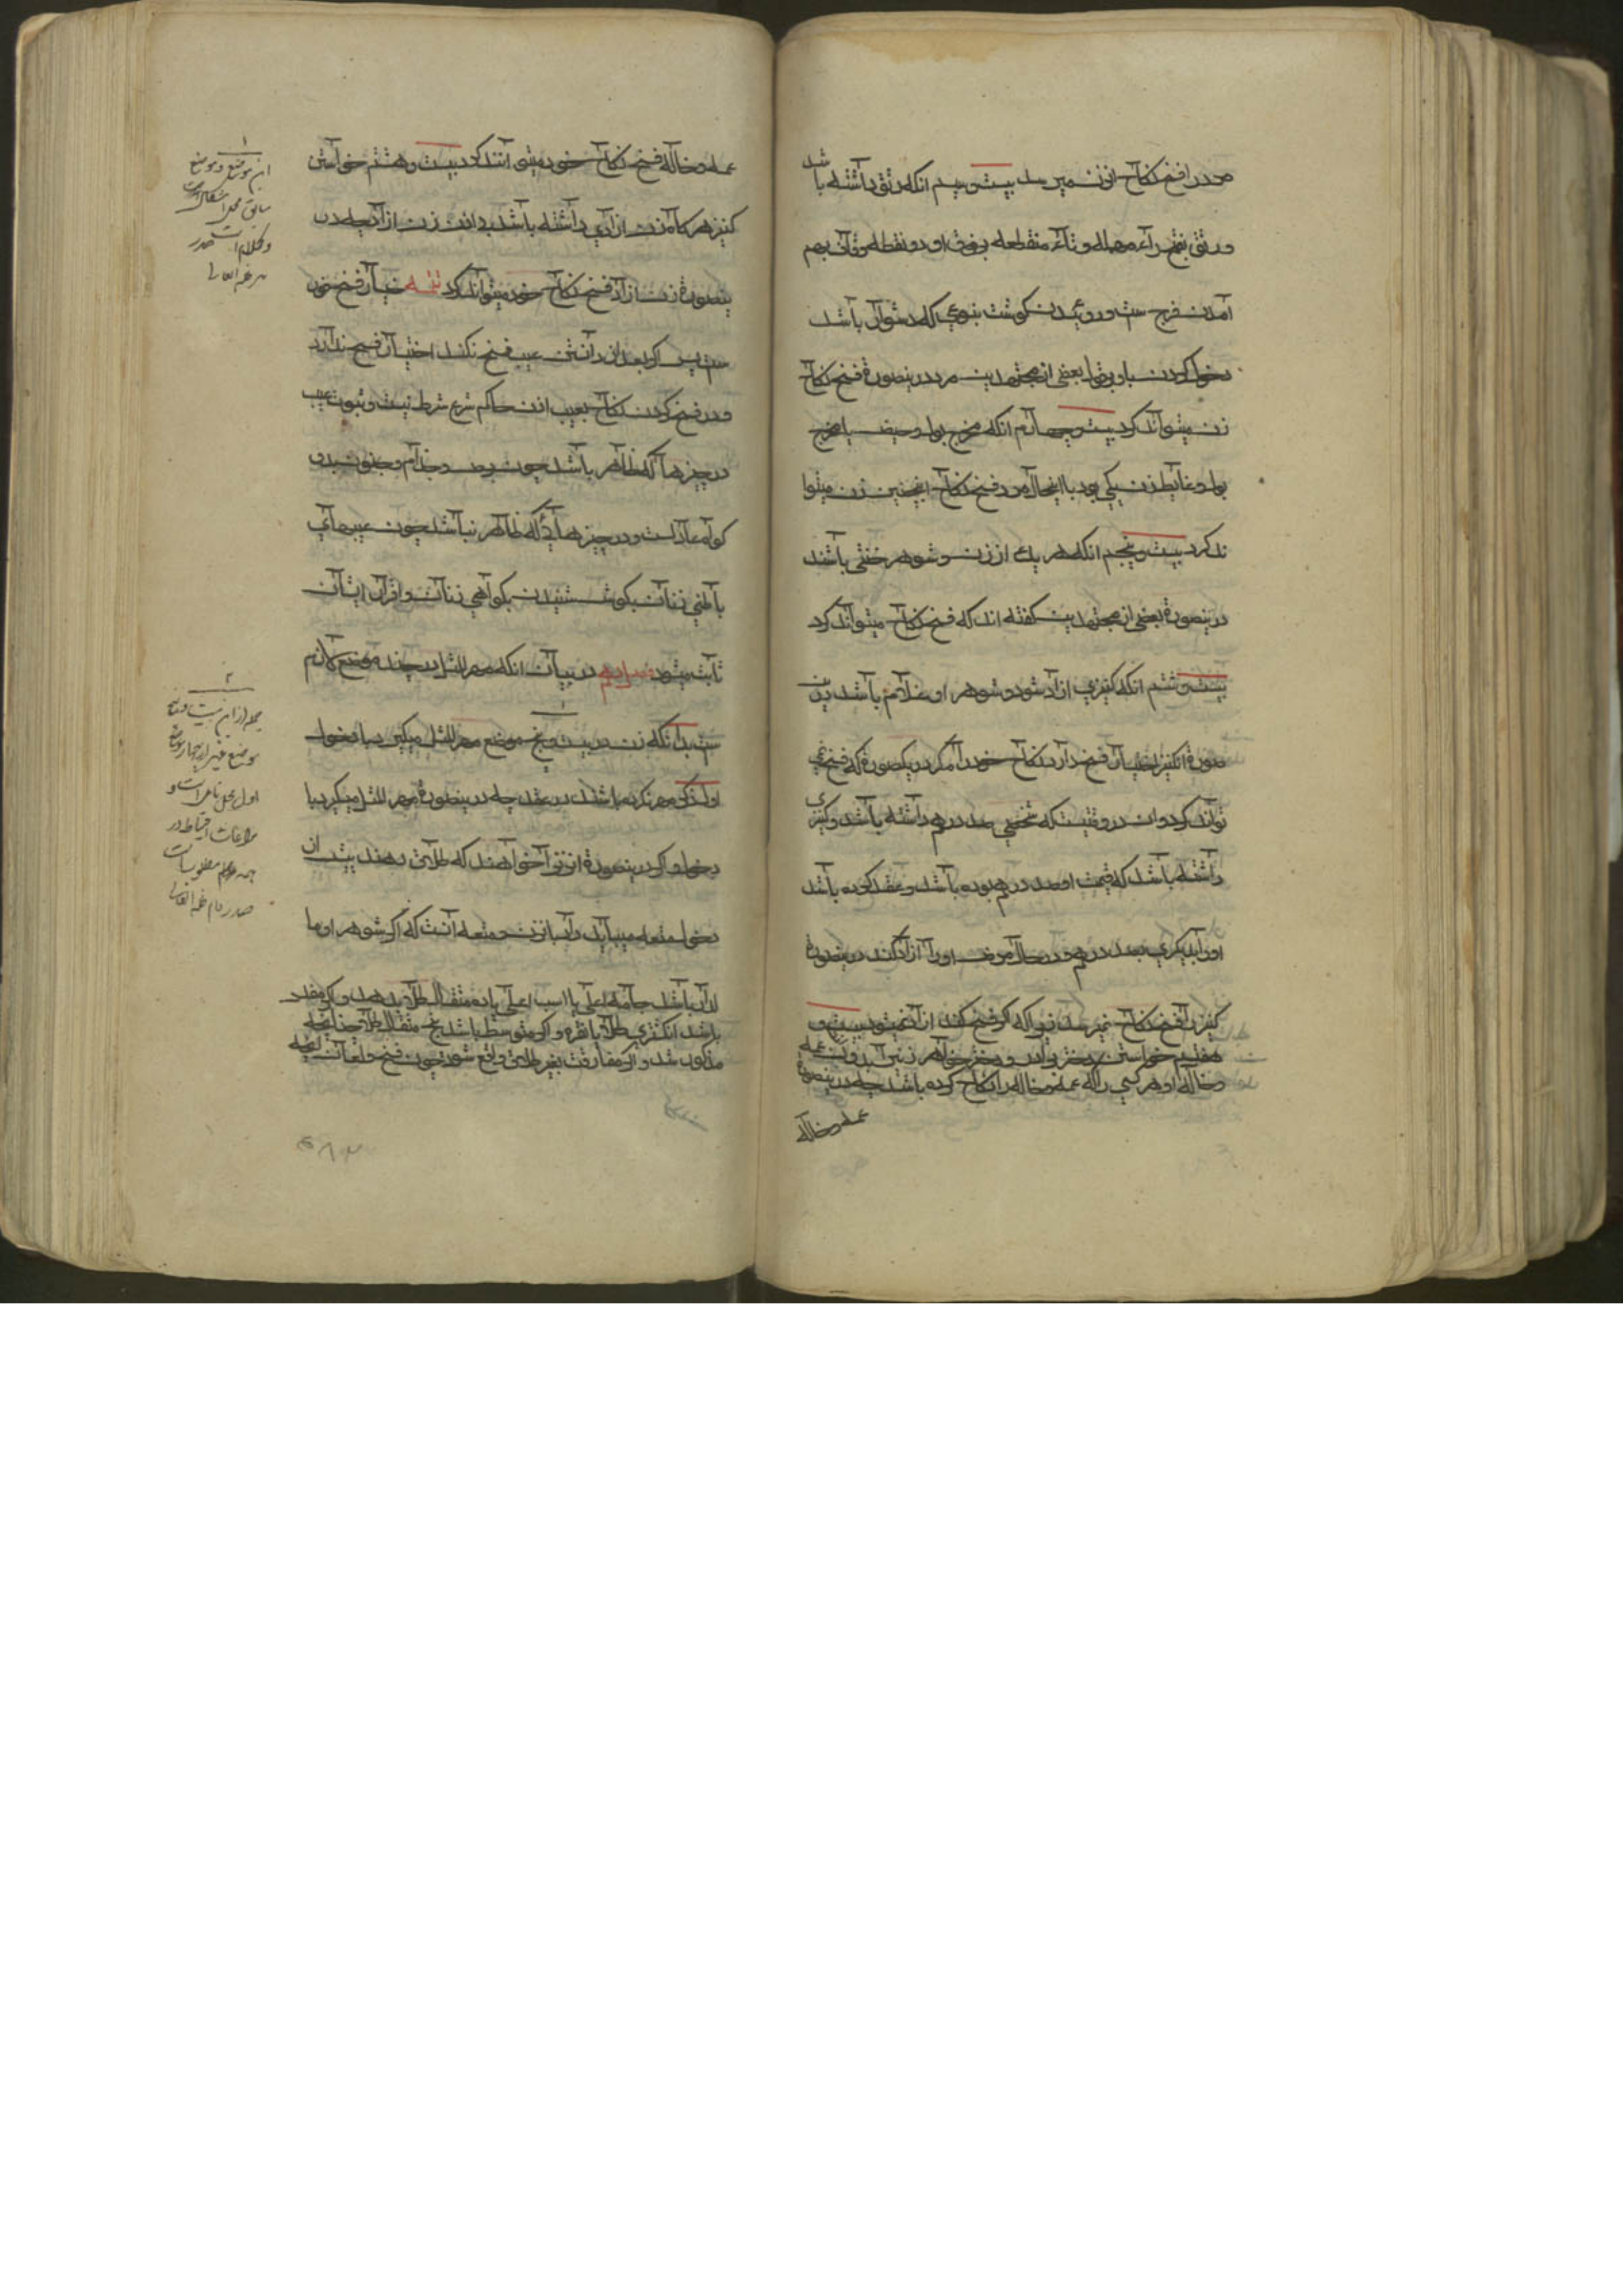 مرد را فسخ نکاح ان زن میرسد بیست و سیم انکه رتق داشته باشد
و رتق بفتح راء مهمله و تاء منقطعه بفوق او دو نقطه و قاف بهم
آمدن فرج ست و روئیدن گوشت بنوعی که دشوار باشد
دخول کردن باو بقول بعضی از مجتهدین مرد درینصورة فسخ نکاح
زن میتواند کرد بیست و چهارم انکه مخرج بول و حیض یا مخرج
بول و غایط زن یکی بود با اینحال مرد فسخ نکاح اینچنین زن میتوا
ند کرد بیست و پنجم انکه هر یک از زن و شوهر خنثی باشند
درینصورة بعضی از مجتهدین گفته اند که فسخ نکاح میتواند کرد
بیست و ششم انکه کنیزی ازاد شود و شوهر او غلام باشد درین
صورة انکنیز اختیار فسخ دارد نکاح خود را مگر در یکصورة که فسخ نمی
تواند کرد و ان در وقتیست که شخصی صد درهم داشته باشد و کنیزی
داشته باشد که قیمت او صد درهم بوده باشد و عقد کرده باشد
اورا بدیگری بصد درهم و در حال مرض اورا آزاد کند درینصورة
کنیز را فسخ نکاح نمیرسد زیرا که اگر فسخ کند ازاد نمیشود بیست و
هفتم خواستن دختر برادر و دختر خواهر زن بی اذن عمه
و خاله او هر کسی را که عمه و خاله را نکاح کرده باشد چه درینصورة
عمه و خاله
عمه و خاله فسخ نکاح خود میتوانند کرد بیست و هشتم خواستن
کنیز هر گاه زن ازادی داشته باشد بی اذن زن ازاد چه در
ینصورة زن ازاد فسخ نکاح خود میتواند کرد تتمه خیار فسخ فوری
ست پس اگر بعد از دانستن عیب فسخ نکند اختیار فسخ ندارد
و در فسخ کردن نکاح بعیب اذن حاکم شرع شرط نیست و ثبوت عیب
در چیزها که ظاهر باشد چون برص و جذام و جنون بدو
گواه عادلست و در چیزهائی که ظاهر نباشد چون عیبهای
باطنی زنان بگوش شنیدن بگواهی زنان و اقرار ایشان
ثابت میشود در بیان انکه مهر المثل در چند موضع لازم
ست بدانکه زن در بیست و پنج موضع مهر المثل میگیرد با دخول
اول ذکر مهر نکرده باشند در عقد چه درینصورة مهر المثل میگیرد با
دخول و اگر درینصورة ان زنرا خواهند که طلاق دهند پیش از
دخول متعه میباید داد بانزن و متعه آنست که اگر شوهر او ما
لدار باشد جامه اعلی یا اسب اعلی یا ده مثقال طلا بدهد و اگر مفلس
باشد انگشتری طلا یا نقره و اگر متوسط باشد پنج مثقال طلا چنانچه
مذکور شد و اگر مفارقت بغیر طلاق واقع شود چون فسخ و لعان متعه
۱
این موضع و موضع
سابق محل اشکال است
و کلام است صدر
مد ظله العالی
۲
جمله از این بیست و پنج
موضع غیر از چهار موضع
اول محل تامل است و
مراعات احتیاط در
همه مطلوبست
صدر دام ظله العالی